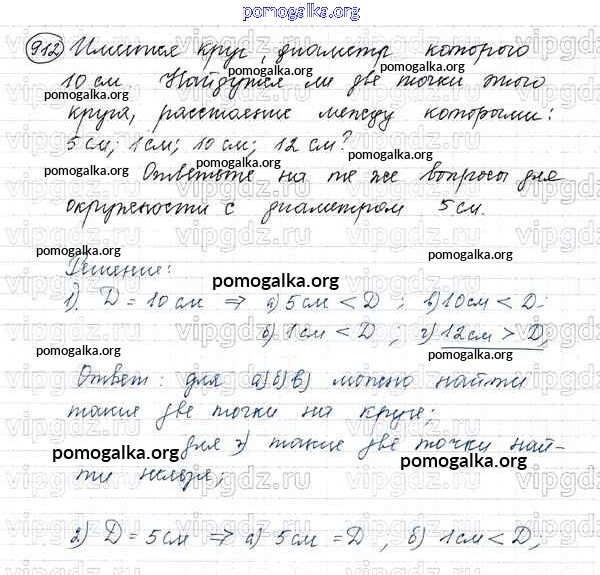 pomogalka.org
912 Имеется круг, диаметр которого
10 см. Найдутся ли две точки этого
pomogalka.org
pomogalka.org
круга, расстояние между которыми:
5 см; 1 см; 10 см; 12 см?
pomogalka.org
Ответьте на те же вопросы для
окружности с диаметром 5 см.
pomogalka.org
pomogalka.org
Решение:
pomogalka.org
1). D = 10 см ⇒ а) 5 см < D ; в) 10 см < D.
б) 1 см < D ; г) 12 см > D;
pomogalka.org
pomogalka.org
Ответ: для а) б) в) можно найти
такие две точки на круге;
для г) такие две точки най-
pomogalka.org
pomogalka.org
ти нельзя;
2) D = 5 см ⇒ а) 5 см = D , б) 1 см < D;